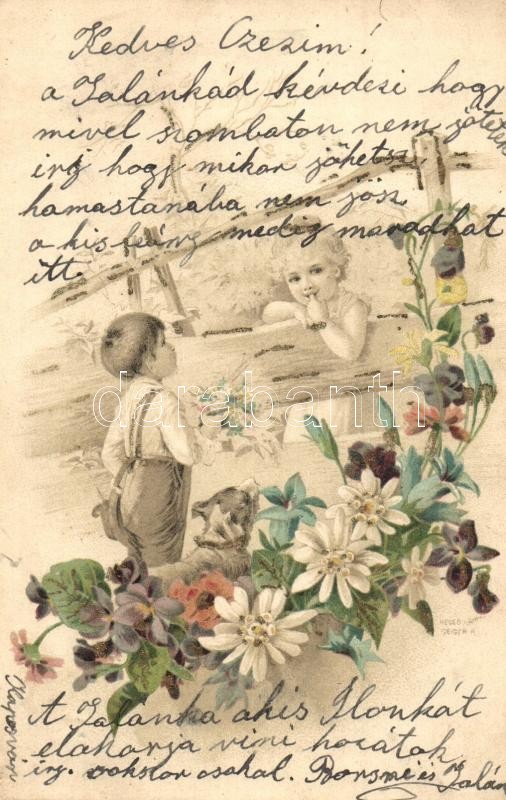 Kedves Czezim!
a Jalánkád kévdezi hogy
mivel szombaton nem jötek
irj hogy mikor jöhetsz,
hamastanába nem jösz
a kis leány medig maradhat
itt.
darabanth
HEGEDŰS
GEIGER R.
A Jalánka a kis Ilonkát
elakarja vini hozátok
irj. sokszor csokol. Borsné és Jalán